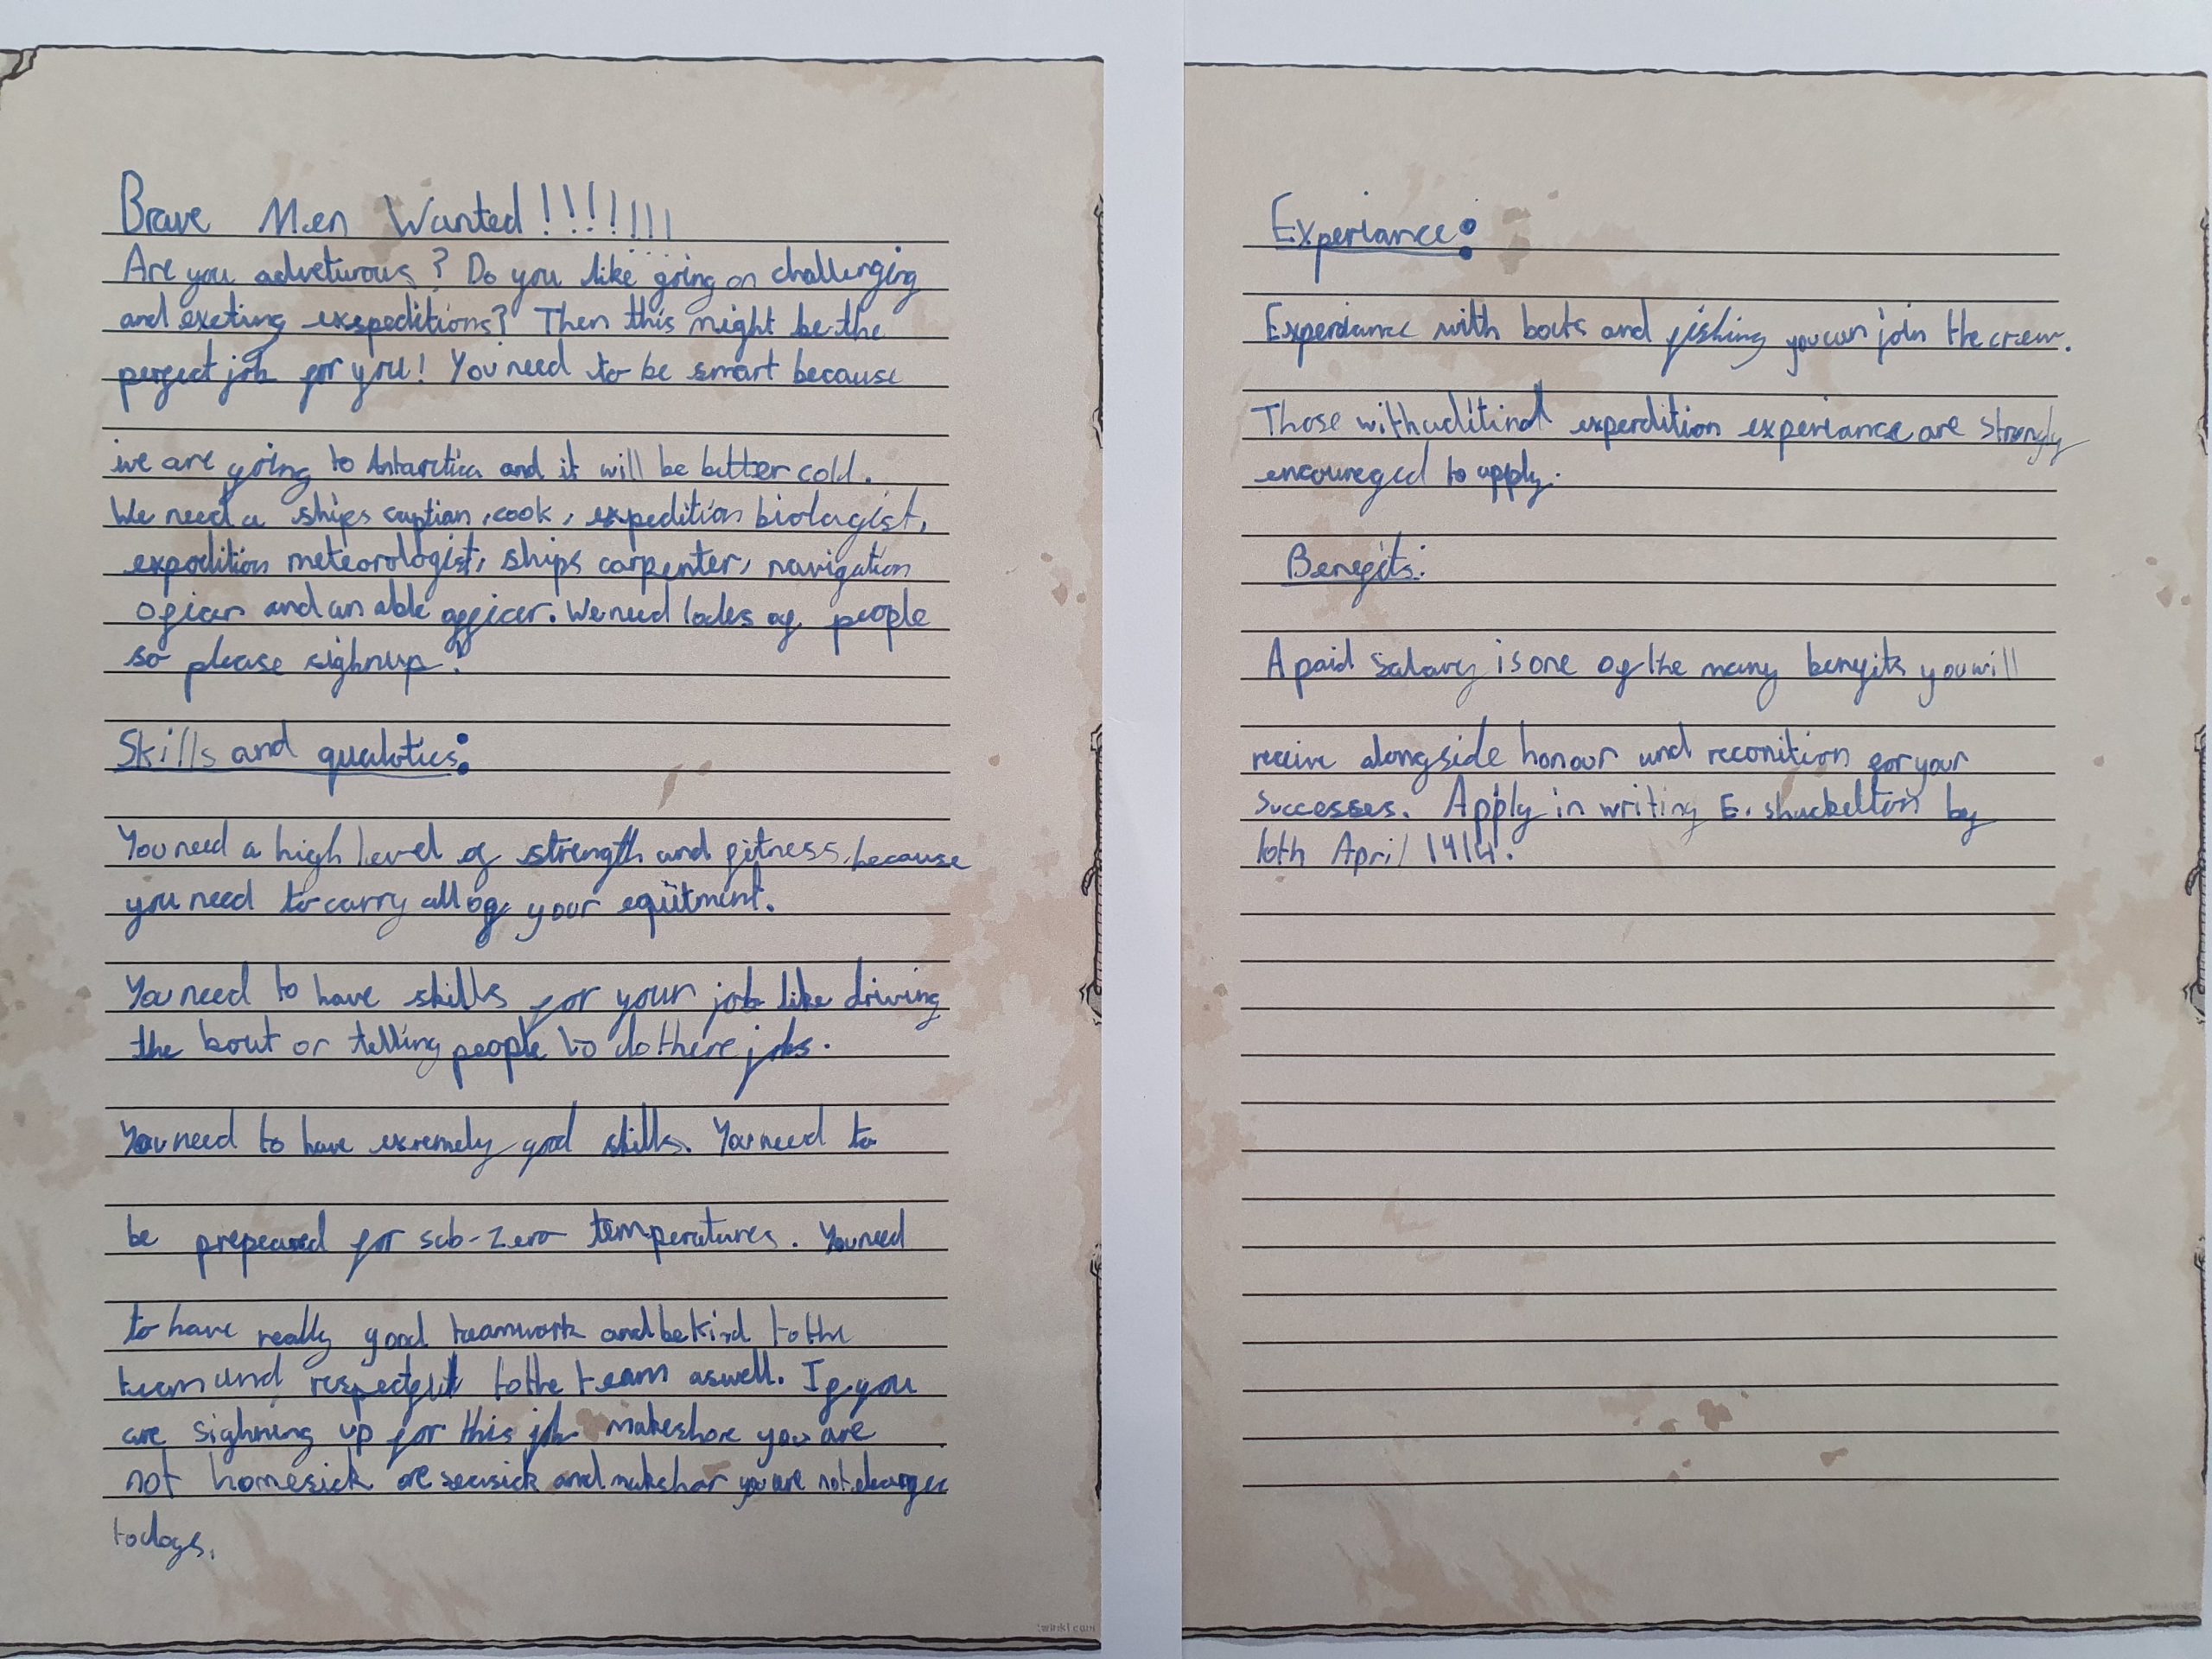 Brave Men Wanted!!!!!!!!
Are you adveturous? Do you like going on challenging
and exeting exspeditions? Then this might be the
perfect job for you! You need to be smart because
we are going to Antarctica and it will be bitter cold.
We need a ships captian, cook, expedition biologist,
expedition meteorologist, ships carpenter, navigation
oficer and an able officer. We need lodes of people
so please sighnup!
Skills and qualoties:
You need a high level of strength and fitness, because
you need to carry all of your equitment.
You need to have skills for your job like driving
the boat or telling people to do there jobs.
You need to have exremely good skills. You need to
be prepeared for sub-zero temperatures. You need
to have really good teamwork and be kind to the
team and respectful to the team aswell. If you
are sighning up for this job makeshore you are
not homesick ore seasick and makshor you are not
to dogs.
twinkl.com
Experiance:
Experiance with boats and fishing you can join the crew.
Those with aditinal experdition experiance are strongly
encoureged to apply.
Benefits:
A paid salary is one of the many benefits you will
receive alongside honour and reconition for your
successes. Apply in writing E. shackelton by
10th April 1914.